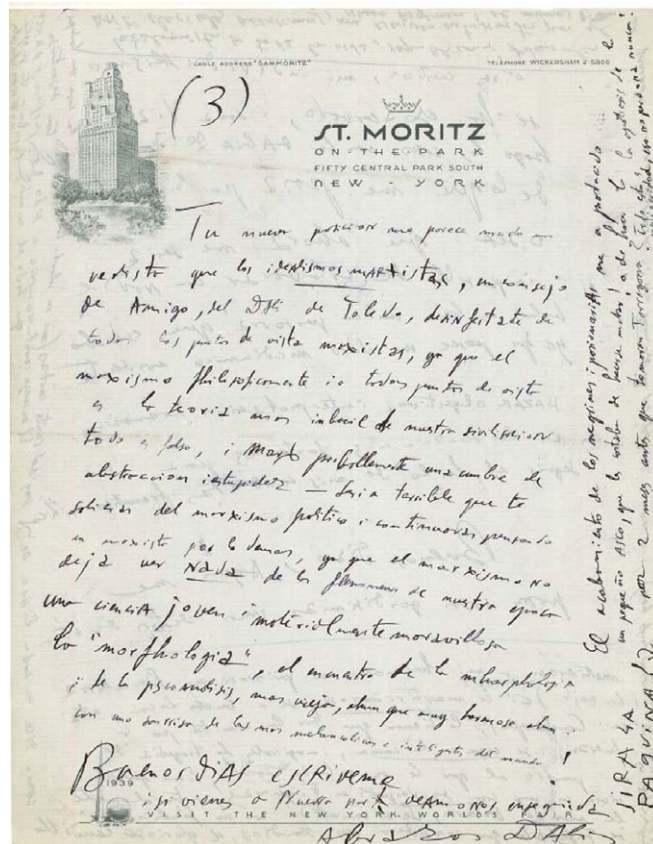 CABLE ADDRESS "SANMORITZ"
TELEPHONE WICKERSHAM 2-5800
(3)
ST. MORITZ
ON THE PARK
FIFTY CENTRAL PARK SOUTH
NEW YORK
Tu nueva posicion me parece mucho mas
realista que los idealismos marxistas, un consejo
de Amigo, del Dalí de Toledo, desinfectate de
todos los puntos de vista marxistas, ya que el
marxismo philosoficamente i a todos puntos de vista
es la teoria mas imbecil de nuestra sivilisacion
todo es falso, i Marx probablemente una cumbre de
abstraccion i estupidez — Seria terrible que te
salieras del marxismo politico i continuaras pensando
en marxista por lo demas, ya que el marxismo no
deja ver NADA de los phenomenos de nuestra epoca
una ciencia joven i materialmente maravillosa
la "morphologia", el encuentro de la morphologia
i de la psicoanalisis, mas vieja, aunque muy hermosa
con una sonrisa de las mas melancolicas e inteligentes del mundo!
Buenos DIAS escriveme
i si vienes a Nueva York veamonos enseguida
Abrazos DALI
1939
VISIT THE NEW YORK WORLD'S FAIR
El de los negrines i me a
un pequeño ASCO, que
por 2 meses antes que tomaron Tarragona
JIRA LA
PAGUINA